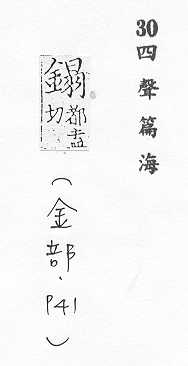 30四聲篇海
鎉
都盍
切
(金部.P41)